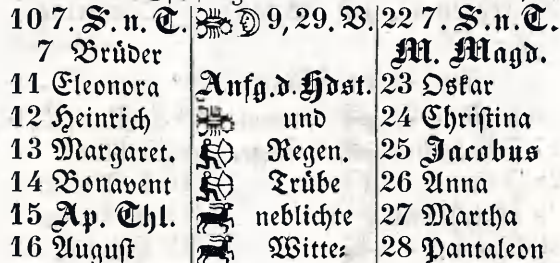 10 7. S. n. T. 9, 29. V. 22 7. S. n. T.
7 Brüder M. Magd.
11 Eleonora Anfg. d. Hdst. 23 Oskar
12 Heinrich und 24 Christina
13 Margaret. Regen. 25 Jacobus
14 Bonavent Trübe 26 Anna
15 Ap. Thl. neblichte 27 Martha
16 August Witte⸗ 28 Pantaleon